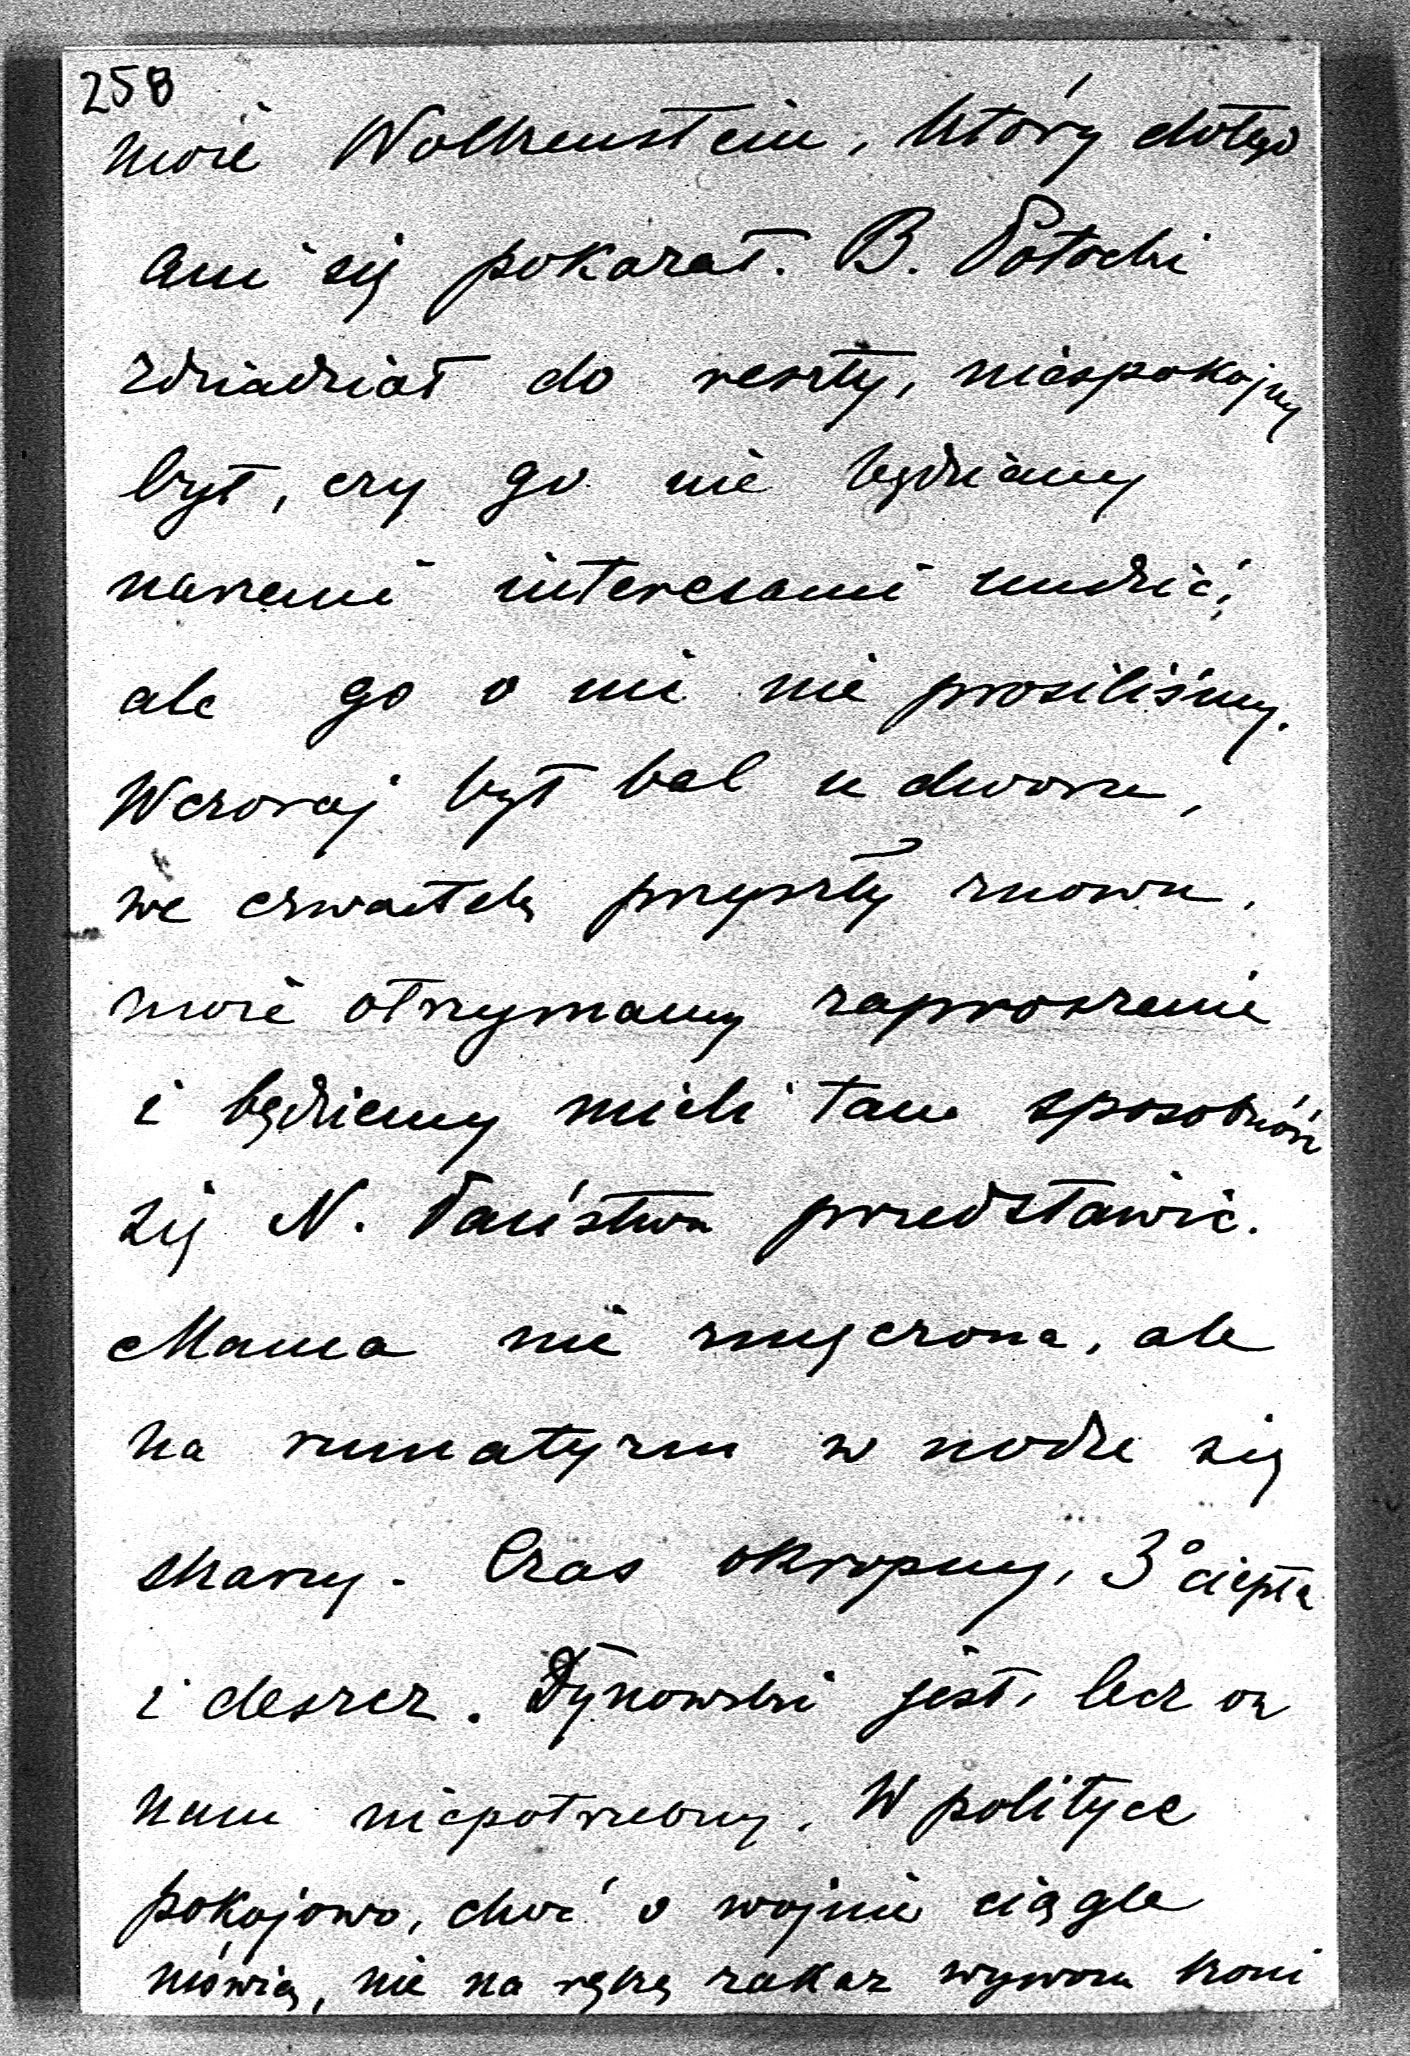 258
może Wolkenstein, który dotąd
ani się pokazał. B. Potocki
zdziadział do reszty, niespokojny
był, czy go nie będziemy
naszemi interesami nudzić,
ale go o nic nie prosiliśmy.
Wczoraj był bal u dworu,
we czwartek przyszły znowu,
może otrzymamy zaproszenie
i będziemy mieli tam sposobność
się N. Państwu przedstawić.
Mama nie zmęczona, ale
na rumatyzm w nodze się
skarży. Czas okropny, 3° ciepła
i deszcz. Dynowski jest, lecz on
nam niepotrzebny. W polityce
pokojowo, choć o wojnie ciągle
mówią, nie na rękę zakaz wywozu koni